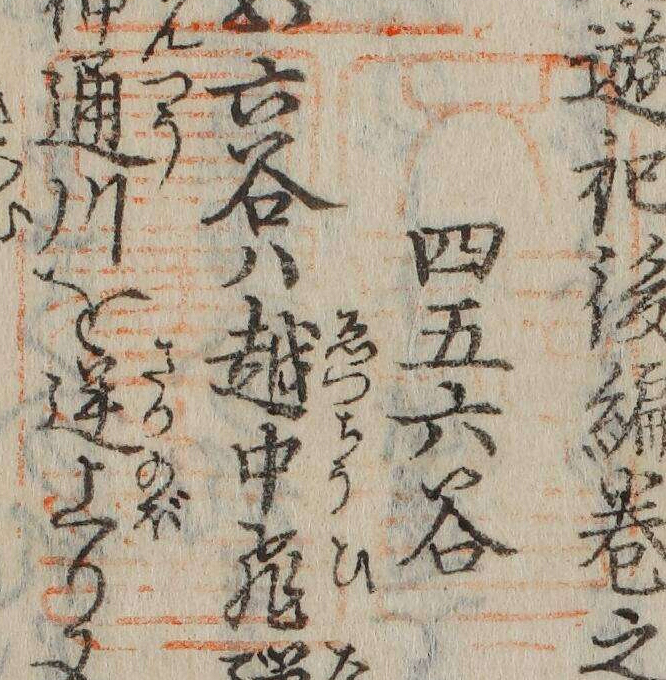 遊記後編巻之
四五六谷
六谷ハ越中飛
ゑつちうひ
神通川を逆上り
んつう
さかのぼ